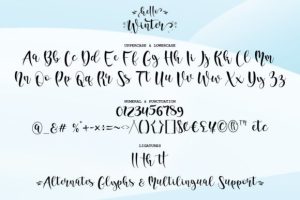 hello
Winter
UPPERCASE & LOWERCASE
Aa Bb Cc Dd Ee Ff Gg Hh Ii Jj Kk Ll Mm
Nn Oo Pp Qq Rr Ss Tt Uu Vv Ww Xx Yy Zz
NUMERAL & PUNCTUATION
0123456789
LIGATURES
ll th tt
Alternates Glyphs & Multilingual Support